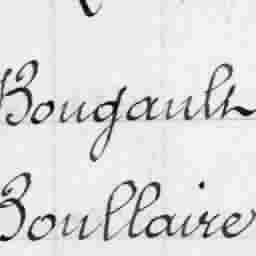 Bougault
Boullaire